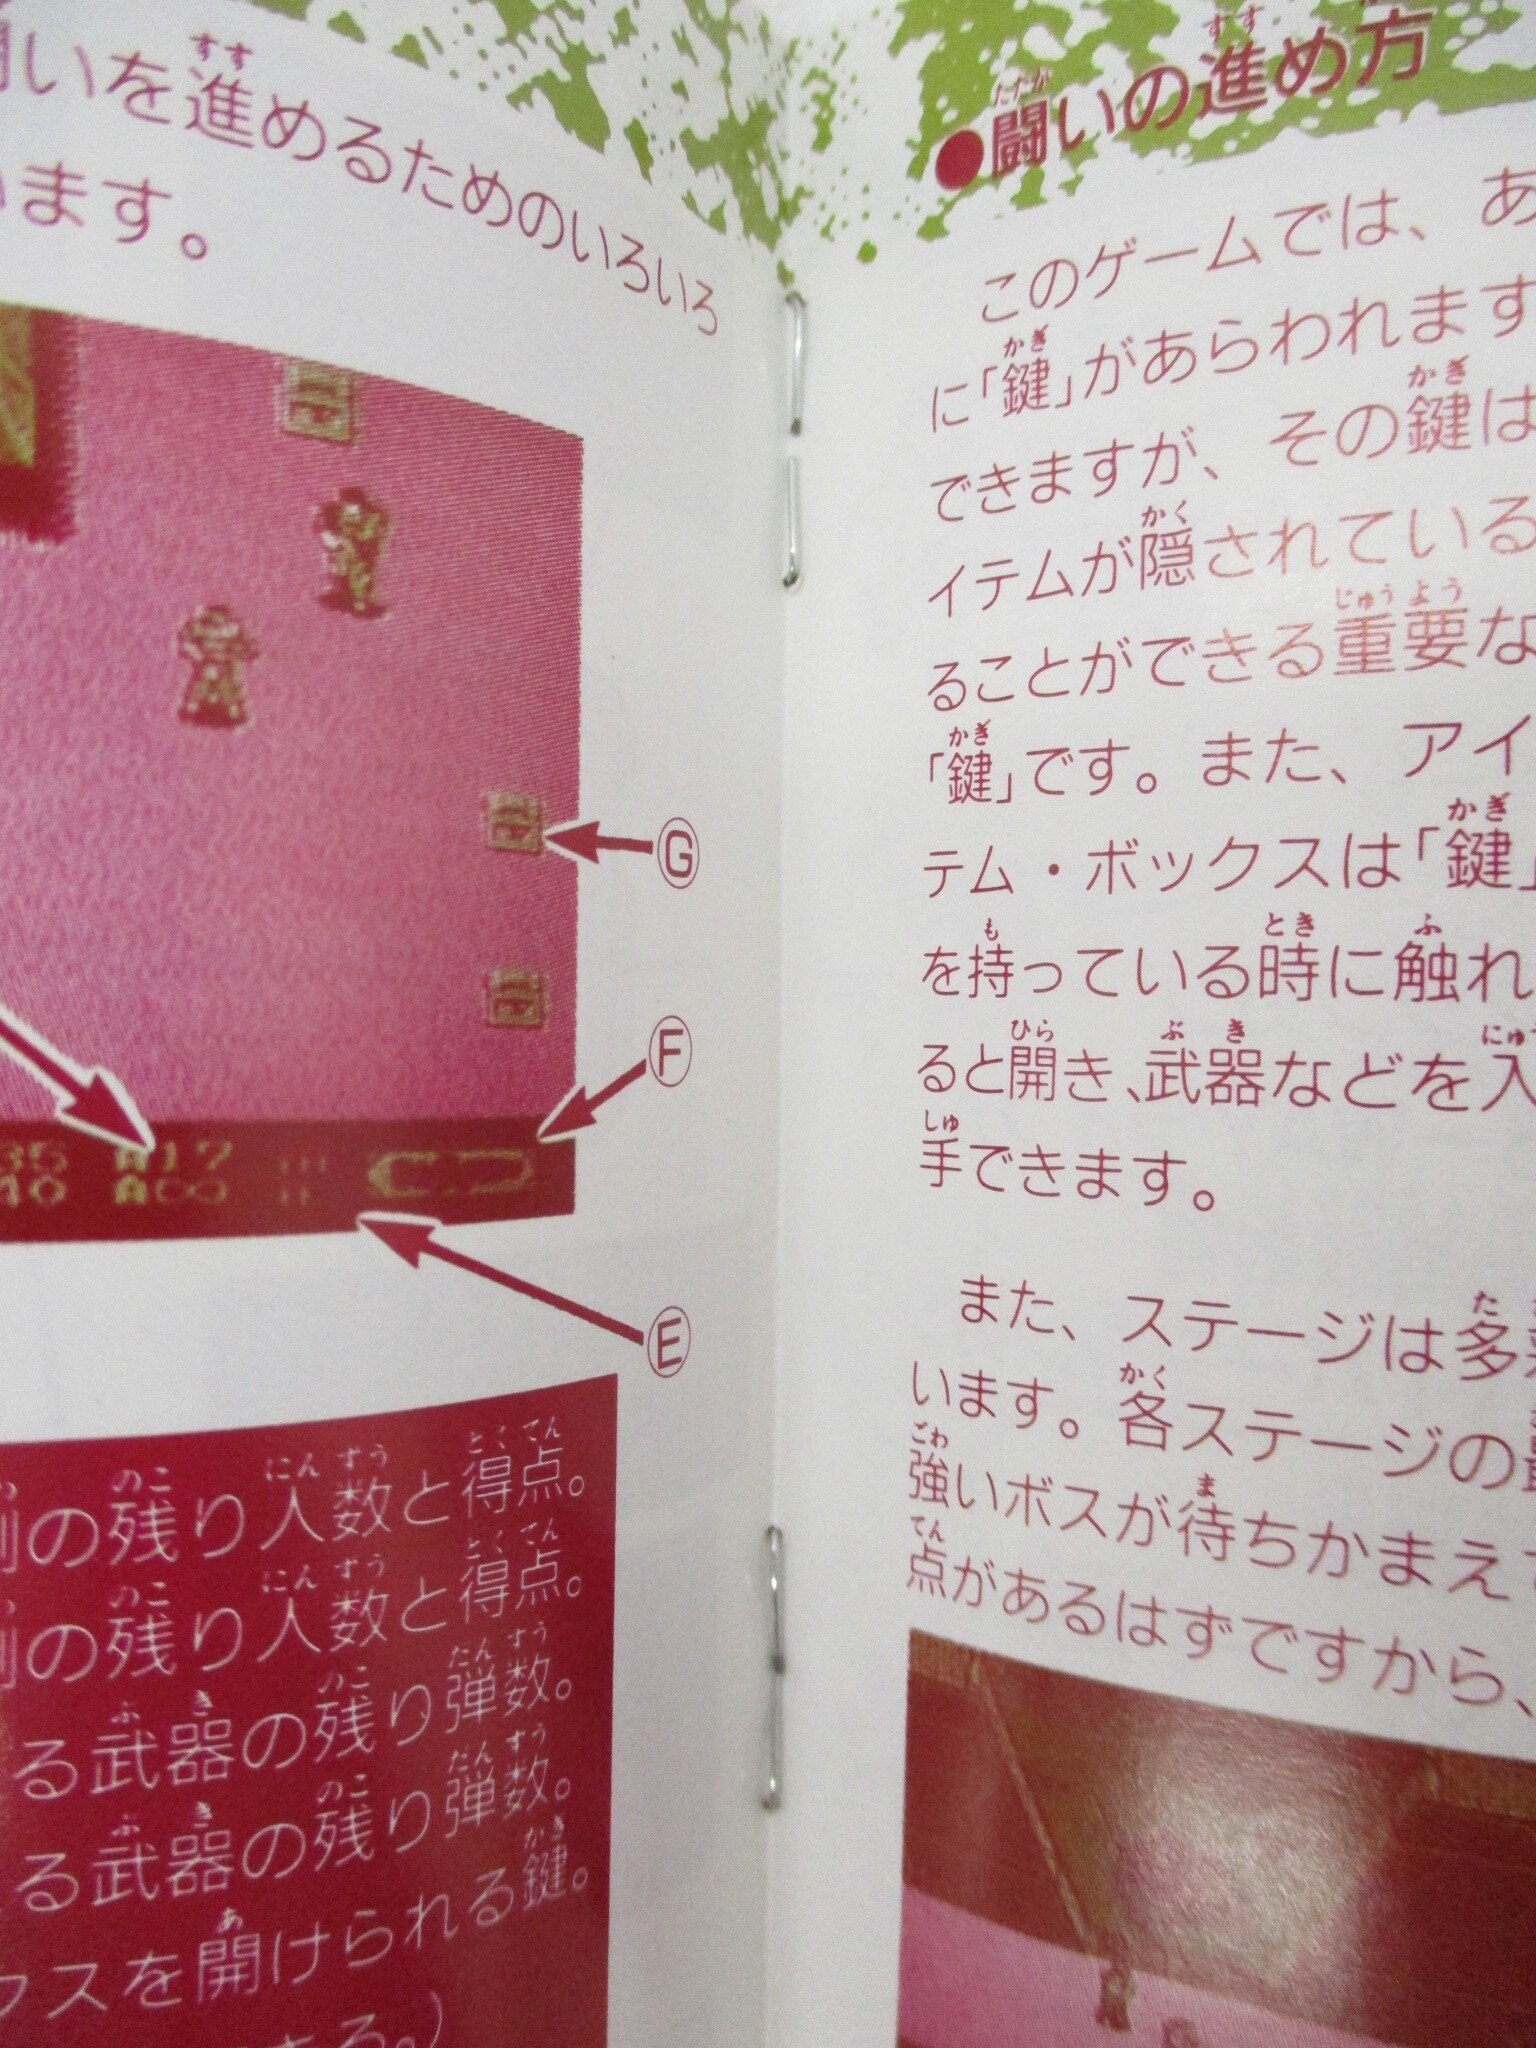 いを進めるためのいろいろ
います。
G
F
35 A17
40 A00
E
の残り人数と得点。
の残り人数と得点。
る武器の残り弾数。
る武器の残り弾数。
クスを開けられる鍵。
る。)
●闘いの進め方
このゲームでは、あ
に「鍵」があらわれます
できますが、その鍵は
イテムが隠されている
ることができる重要な
「鍵」です。また、アイ
テム・ボックスは「鍵」
を持っている時に触れ
ると開き、武器などを入
手できます。
また、ステージは多
います。各ステージの
強いボスが待ちかまえ
点があるはずですから、